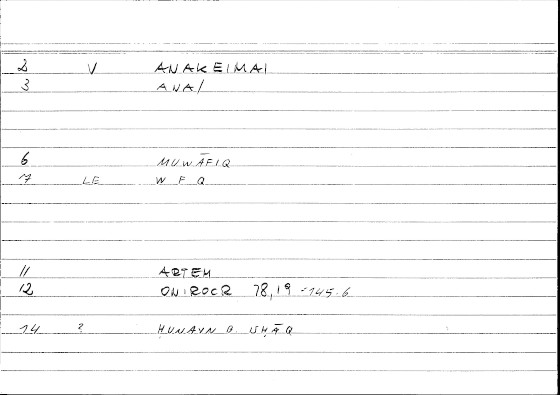 2 V ANAKEIMAI
3 ANA/
6 MUWĀFIQ
17 LE W F Q
11 ARTEM
12 ONIROCR 78,19 - 145.6
14 ? ḤUNAYN B. ISḤĀQ